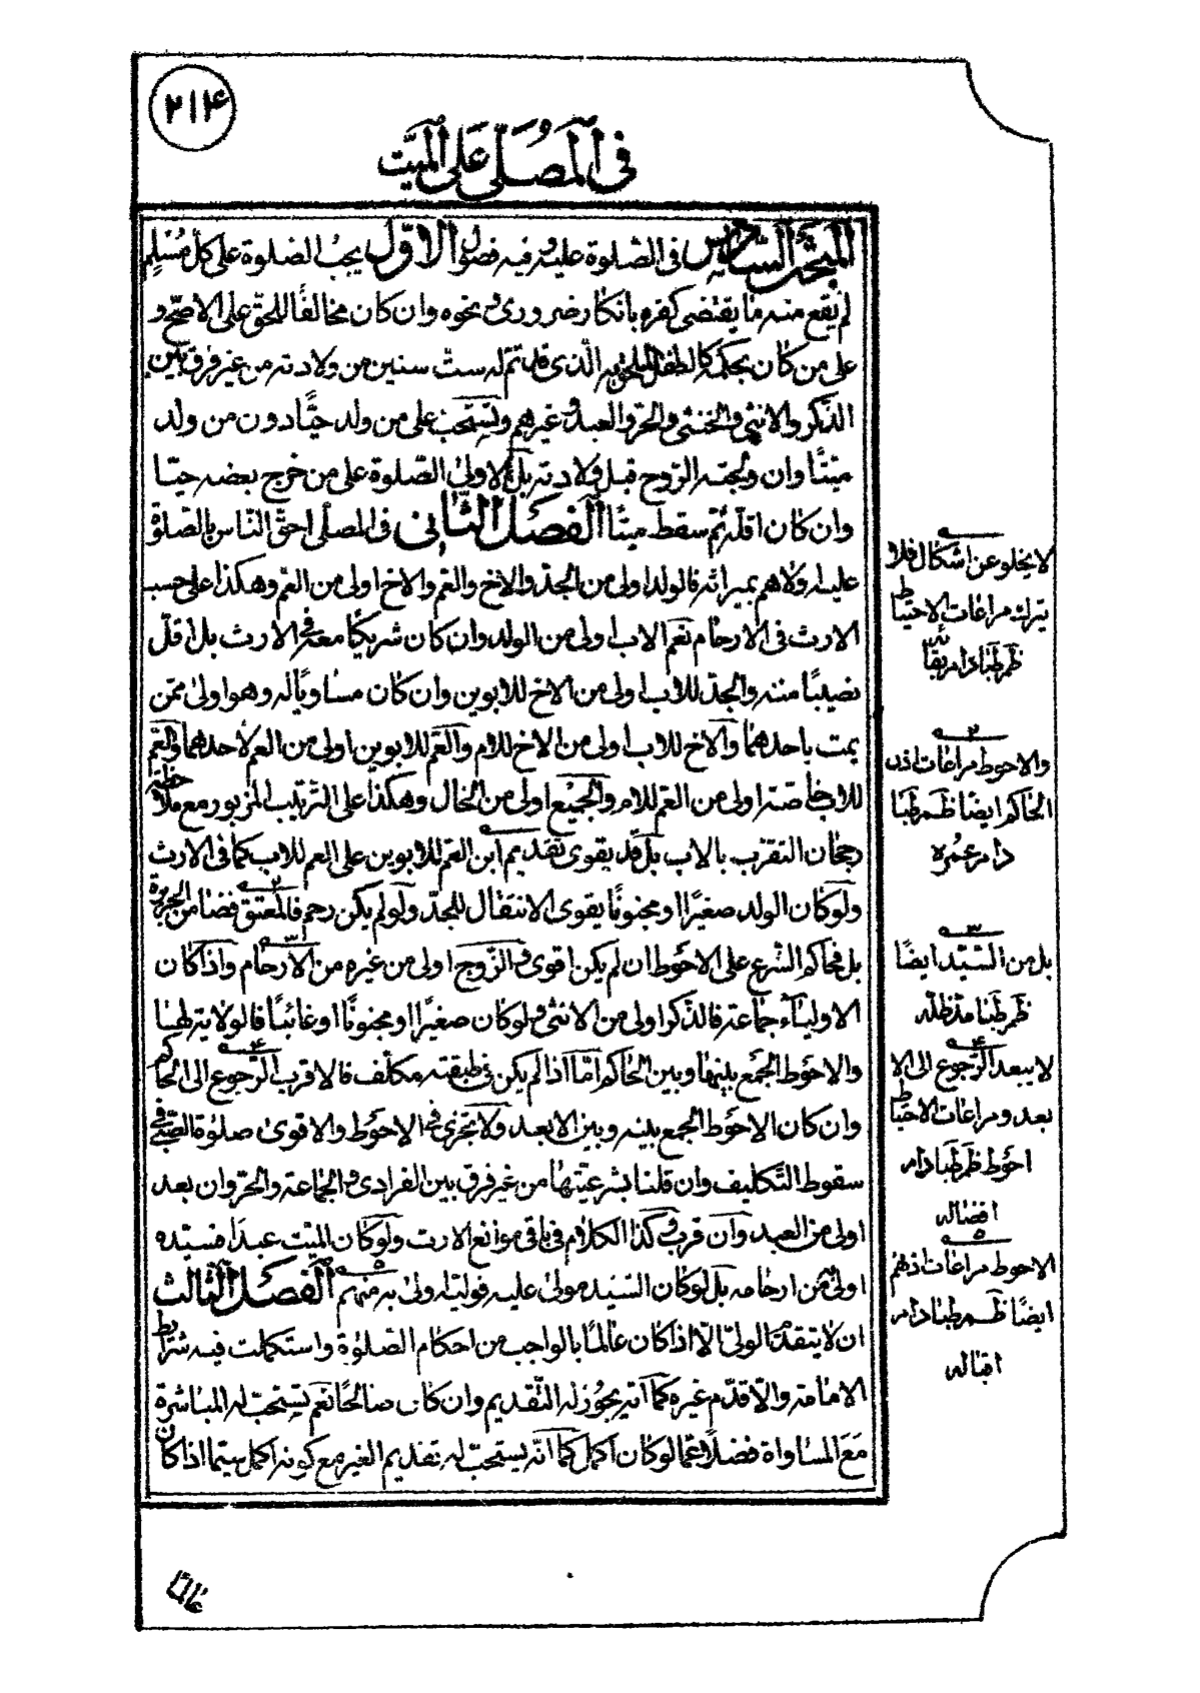 ۲۱۴
في المصلى على الميت
المبحث السادس في الصلوة عليه وفيه فصول الاول يجب الصلوة على كل مسلم
لم يقع منه ما يقتضي كفره بانكار ضروري ونحوه وان كان مخالفا للحق على الاصح و
على من كان بحكمه كالطفل الملحق به الذي قد تم له ست سنين من ولادته من غير فرق بين
الذكر والانثى والخنثى والحر والعبد وغيرهم وتستحب على من ولد حيا دون من ولد
ميتا وان ولجته الروح قبل ولادته بل الاولى الصلوة على من خرج بعضه حيا
وان كان اقله ثم سقط ميتا الفصل الثاني في المصلي احق الناس بالصلوة
عليه اولاهم بميراثه فالولد اولى من الجد والاخ والعم والاخ اولى من العم وهكذا على حسب
الارث في الارحام نعم الاب اولى من الولد وان كان شريكا معه في الارث بل اقل
نصيبا منه والجد للاب اولى من الاخ للابوين وان كان مساويا له وهو اولى ممن
يمت باحدهما والاخ للاب اولى من الاخ للام والعم للابوين اولى من العم لاحدهما والعم
للاب خاصة اولى من العم للام والجميع اولى من الخال وهكذا على الترتيب المزبور مع ملاحظة
رجحان التقرب بالاب بل قد يقوى تقديم ابن العم للابوين على العم للاب كما في الارث
ولو كان الولد صغيرا او مجنونا يقوى الانتقال للجد ولو لم يكن رحم فالمعتق فضامن الجريرة
بل فحاكم الشرع على الاحوط ان لم يكن اقوى والزوج اولى من غيره من الارحام واذا كان
الاولياء جماعة فالذكر اولى من الانثى ولو كان صغيرا او مجنونا او غائبا فالولاية لها
والاحوط الجمع بينها وبين الحاكم اما اذا لم يكن في طبقته مكلف فالاقرب الرجوع الى الحاكم
وان كان الاحوط الجمع بينه وبين الابعد ولا تجزي في الاحوط والاقوى صلوة الصبي في
سقوط التكليف وان قلنا بشرعيتها من غير فرق بين الفرادى والجماعة والحر وان بعد
اولى من العبد وان قرب وكذا الكلام في باقي موانع الارث ولو كان الميت عبدا فسيده
اولى من ارحامه بل لو كان السيد مولى عليه فوليه اولى به منهم الفصل الثالث
ان لا يتقدم الولي الا اذا كان عالما بالواجب من احكام الصلوة واستكملت فيه شرايط
الامامة والا قدم غيره كما انه يجوز له التقديم وان كان صالحا نعم يستحب له المباشرة
مع المساواة فضلا عما لو كان اكمل كما انه يستحب له تقديم الغير مع كونه اكمل سيما اذا كان
لا يخلو عن اشكال فلا
يترك مراعات الاحتياط
۲
والاحوط مراعات اذن
الحاكم ايضا ظم طبا
دام عمره
۳
بل من السيد ايضا
ظم طبا مد ظله
۴
لا يبعد الرجوع الى الا
بعد ومراعات الاحتياط
احوط ظم طبا دام
افضاله
۵
الاحوط مراعات اذنهم
ايضا ظم طبا دام
اقباله